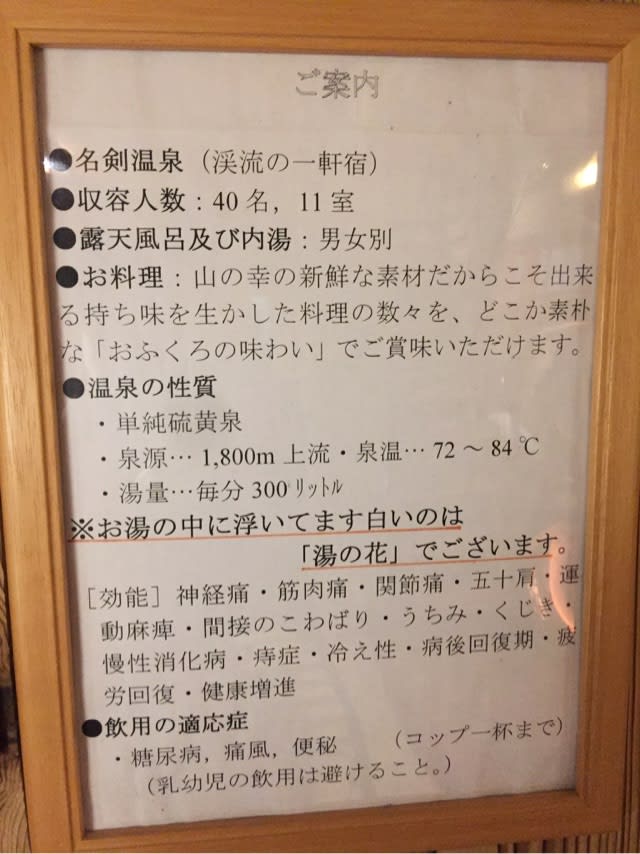 ご案内
●名剣温泉（渓流の一軒宿）
●収容人数：40 名，11 室
●露天風呂及び内湯：男女別
●お料理：山の幸の新鮮な素材だからこそ出来
る持ち味を生かした料理の数々を、どこか素朴
な「おふくろの味わい」でご賞味いただけます。
●温泉の性質
・単純硫黄泉
・泉源… 1,800m 上流・泉温… 72 ～ 84 ℃
・湯量…毎分 300 リットル
※お湯の中に浮いてます白いのは
「湯の花」でございます。
［効能］神経痛・筋肉痛・関節痛・五十肩・運
動麻痺・間接のこわばり・うちみ・くじき・
慢性消化病・痔症・冷え性・病後回復期・疲
労回復・健康増進
●飲用の適応症
・糖尿病，痛風，便秘　　（コップ一杯まで）
（乳幼児の飲用は避けること。）